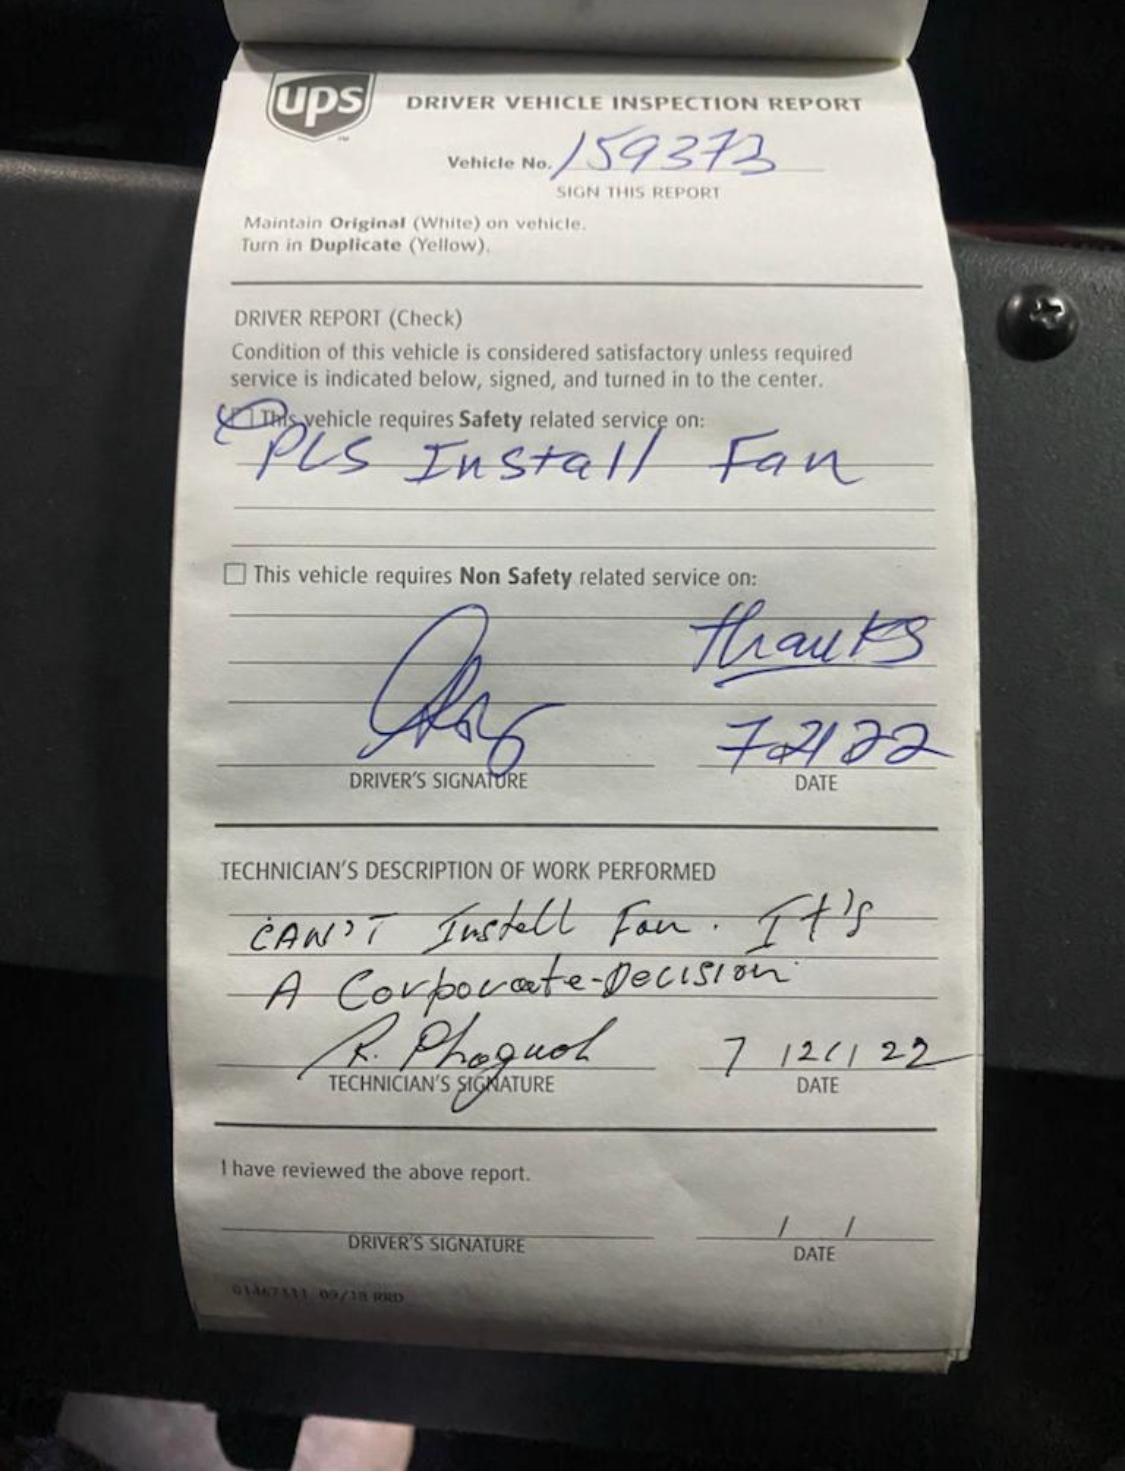 ups
TM
DRIVER VEHICLE INSPECTION REPORT
Vehicle No. 159373
SIGN THIS REPORT
Maintain Original (White) on vehicle.
Turn in Duplicate (Yellow).
DRIVER REPORT (Check)
Condition of this vehicle is considered satisfactory unless required
service is indicated below, signed, and turned in to the center.
This vehicle requires Safety related service on:
PLS Install Fan
This vehicle requires Non Safety related service on:
thanks
DRIVER'S SIGNATURE
DATE
TECHNICIAN'S DESCRIPTION OF WORK PERFORMED
CAN'T Install Fan. It's
A Corporate-Decision
R.
TECHNICIAN'S SIGNATURE
DATE
I have reviewed the above report.
/ /
DRIVER'S SIGNATURE
DATE
09/18 RRD